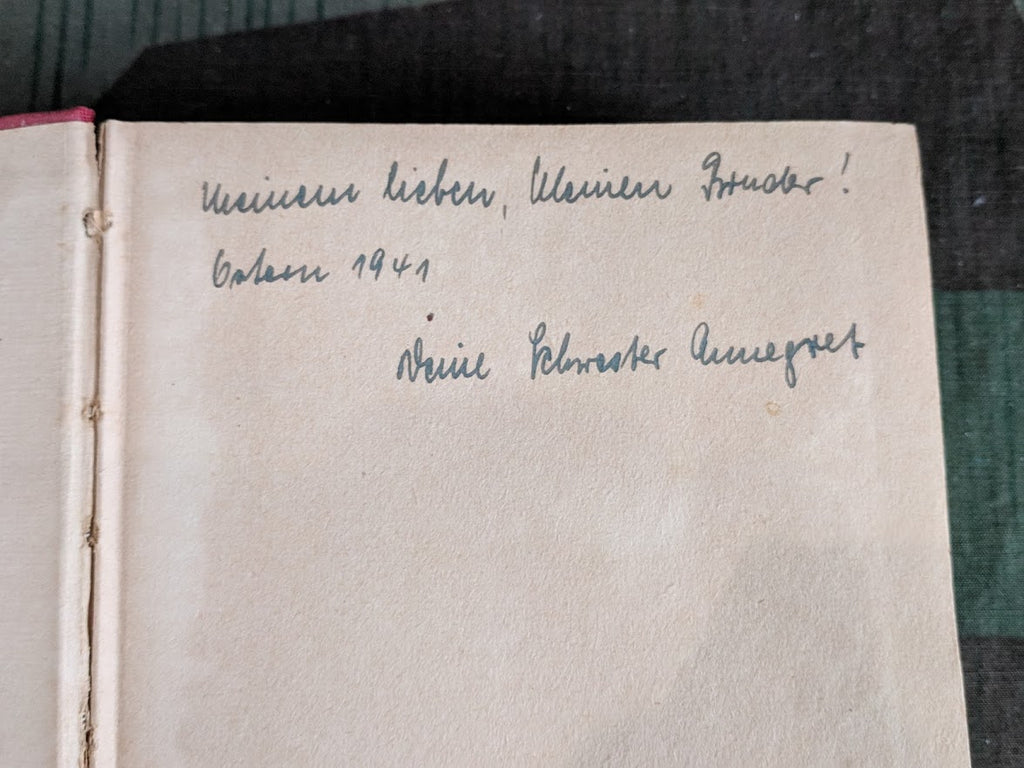 Meinem lieben, kleinen Bruder!
Ostern 1941
Deine Schwester Annegret